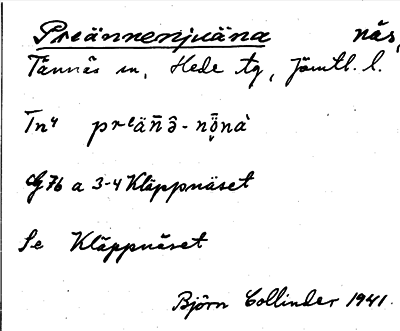 Preännenjuäna näs,
Tännäs sn, Hede tg, Jämtl. l.
Tn⁴ prᵉäñ̄ə̂ - nō̤nà
cg 76 a 3-4 Kläppnäset
Se Kläppnäset
Björn Collinder 1941.